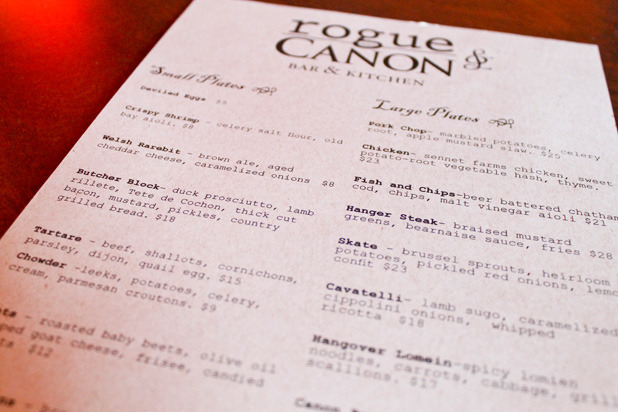 rogue &
CANON
BAR & KITCHEN
Small Plates
Deviled Eggs $5
Crispy Shrimp - celery salt flour, old
bay aioli. $8
Welsh Rarebit - brown ale, aged
cheddar cheese, caramelized onions $8
Butcher Block- duck prosciutto, lamb
rillete, Tete de Cochon, thick cut
bacon, mustard, pickles, country
grilled bread. $18
Tartare - beef, shallots, cornichons,
parsley, dijon, quail egg. $15
Chowder -leeks, potatoes, celery,
cream, parmesan croutons. $9
- roasted baby beets, olive oil
goat cheese, frisee, candied
$12
Large Plates
Pork Chop- marbled potatoes, celery
root, apple mustard slaw. $25
Chicken- sennet farms chicken, sweet
potato-root vegetable hash, thyme.
$23
Fish and Chips-beer battered chatham
cod, chips, malt vinegar aioli $21
Hanger Steak- braised mustard
greens, bearnaise sauce, fries $28
Skate - brussel sprouts, heirloom
potatoes, pickled red onions, lemo
confit $23
Cavatelli- lamb sugo, caramelized
cippolini onions, whipped
ricotta $18
Hangover Lomein-spicy lomien
noodles, carrots, cabbage, grill
scallions. $17
Canon